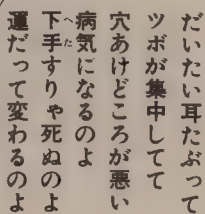 だいたい耳たぶって
ツボが集中してて
穴あけどころが悪い
病気になるのよ
下手すりゃ死ぬのよ
運だって変わるのよ